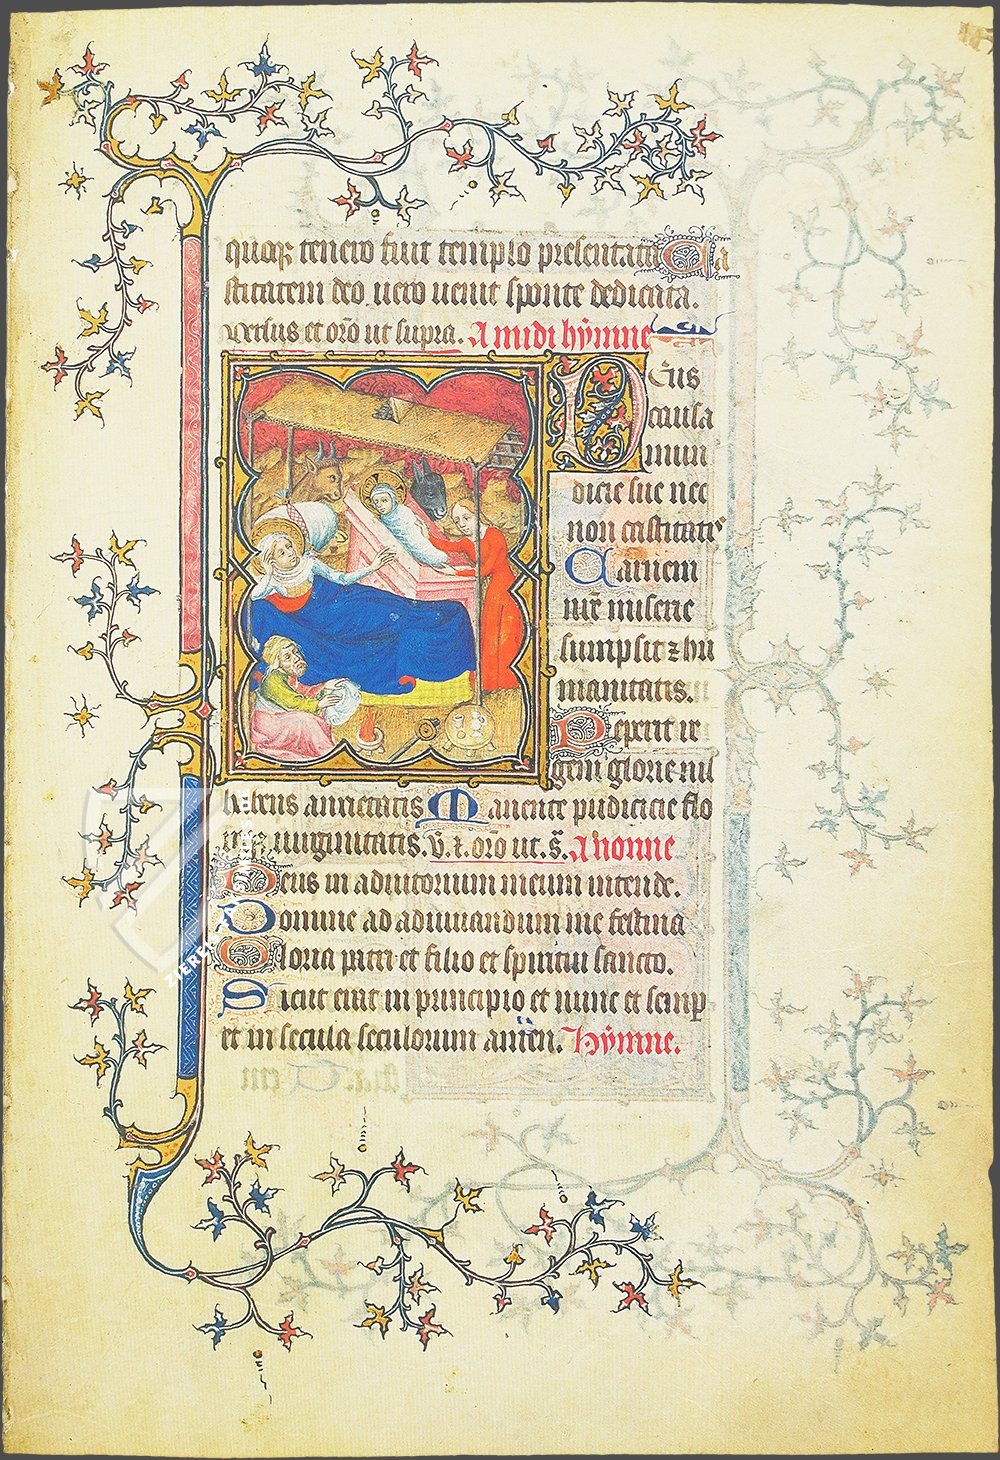 quoq; tenero fuit templo presentata Ca
stitatem deo vero venit sponte dedicata.
versus et orõ ut supra. A midi hÿmne
Deus
causa
mun
dicie sue nec
non castitatis
Carnem
nr̃e miserie
sumpsit ⁊ hu
manitatis.
Peperit re
gem glorie nil
habens anxietatis Manente pudicicie flo
virginitatis. v̄. ⁊. orõ ut. s̃. A nonne
Deus in adiutorium meum intende.
Domine ad adiuuandum me festina
Gloria patri et filio et spiritui sancto.
Sicut erat in principio et nunc et semp
et in secula seculorum amen. hÿmne.